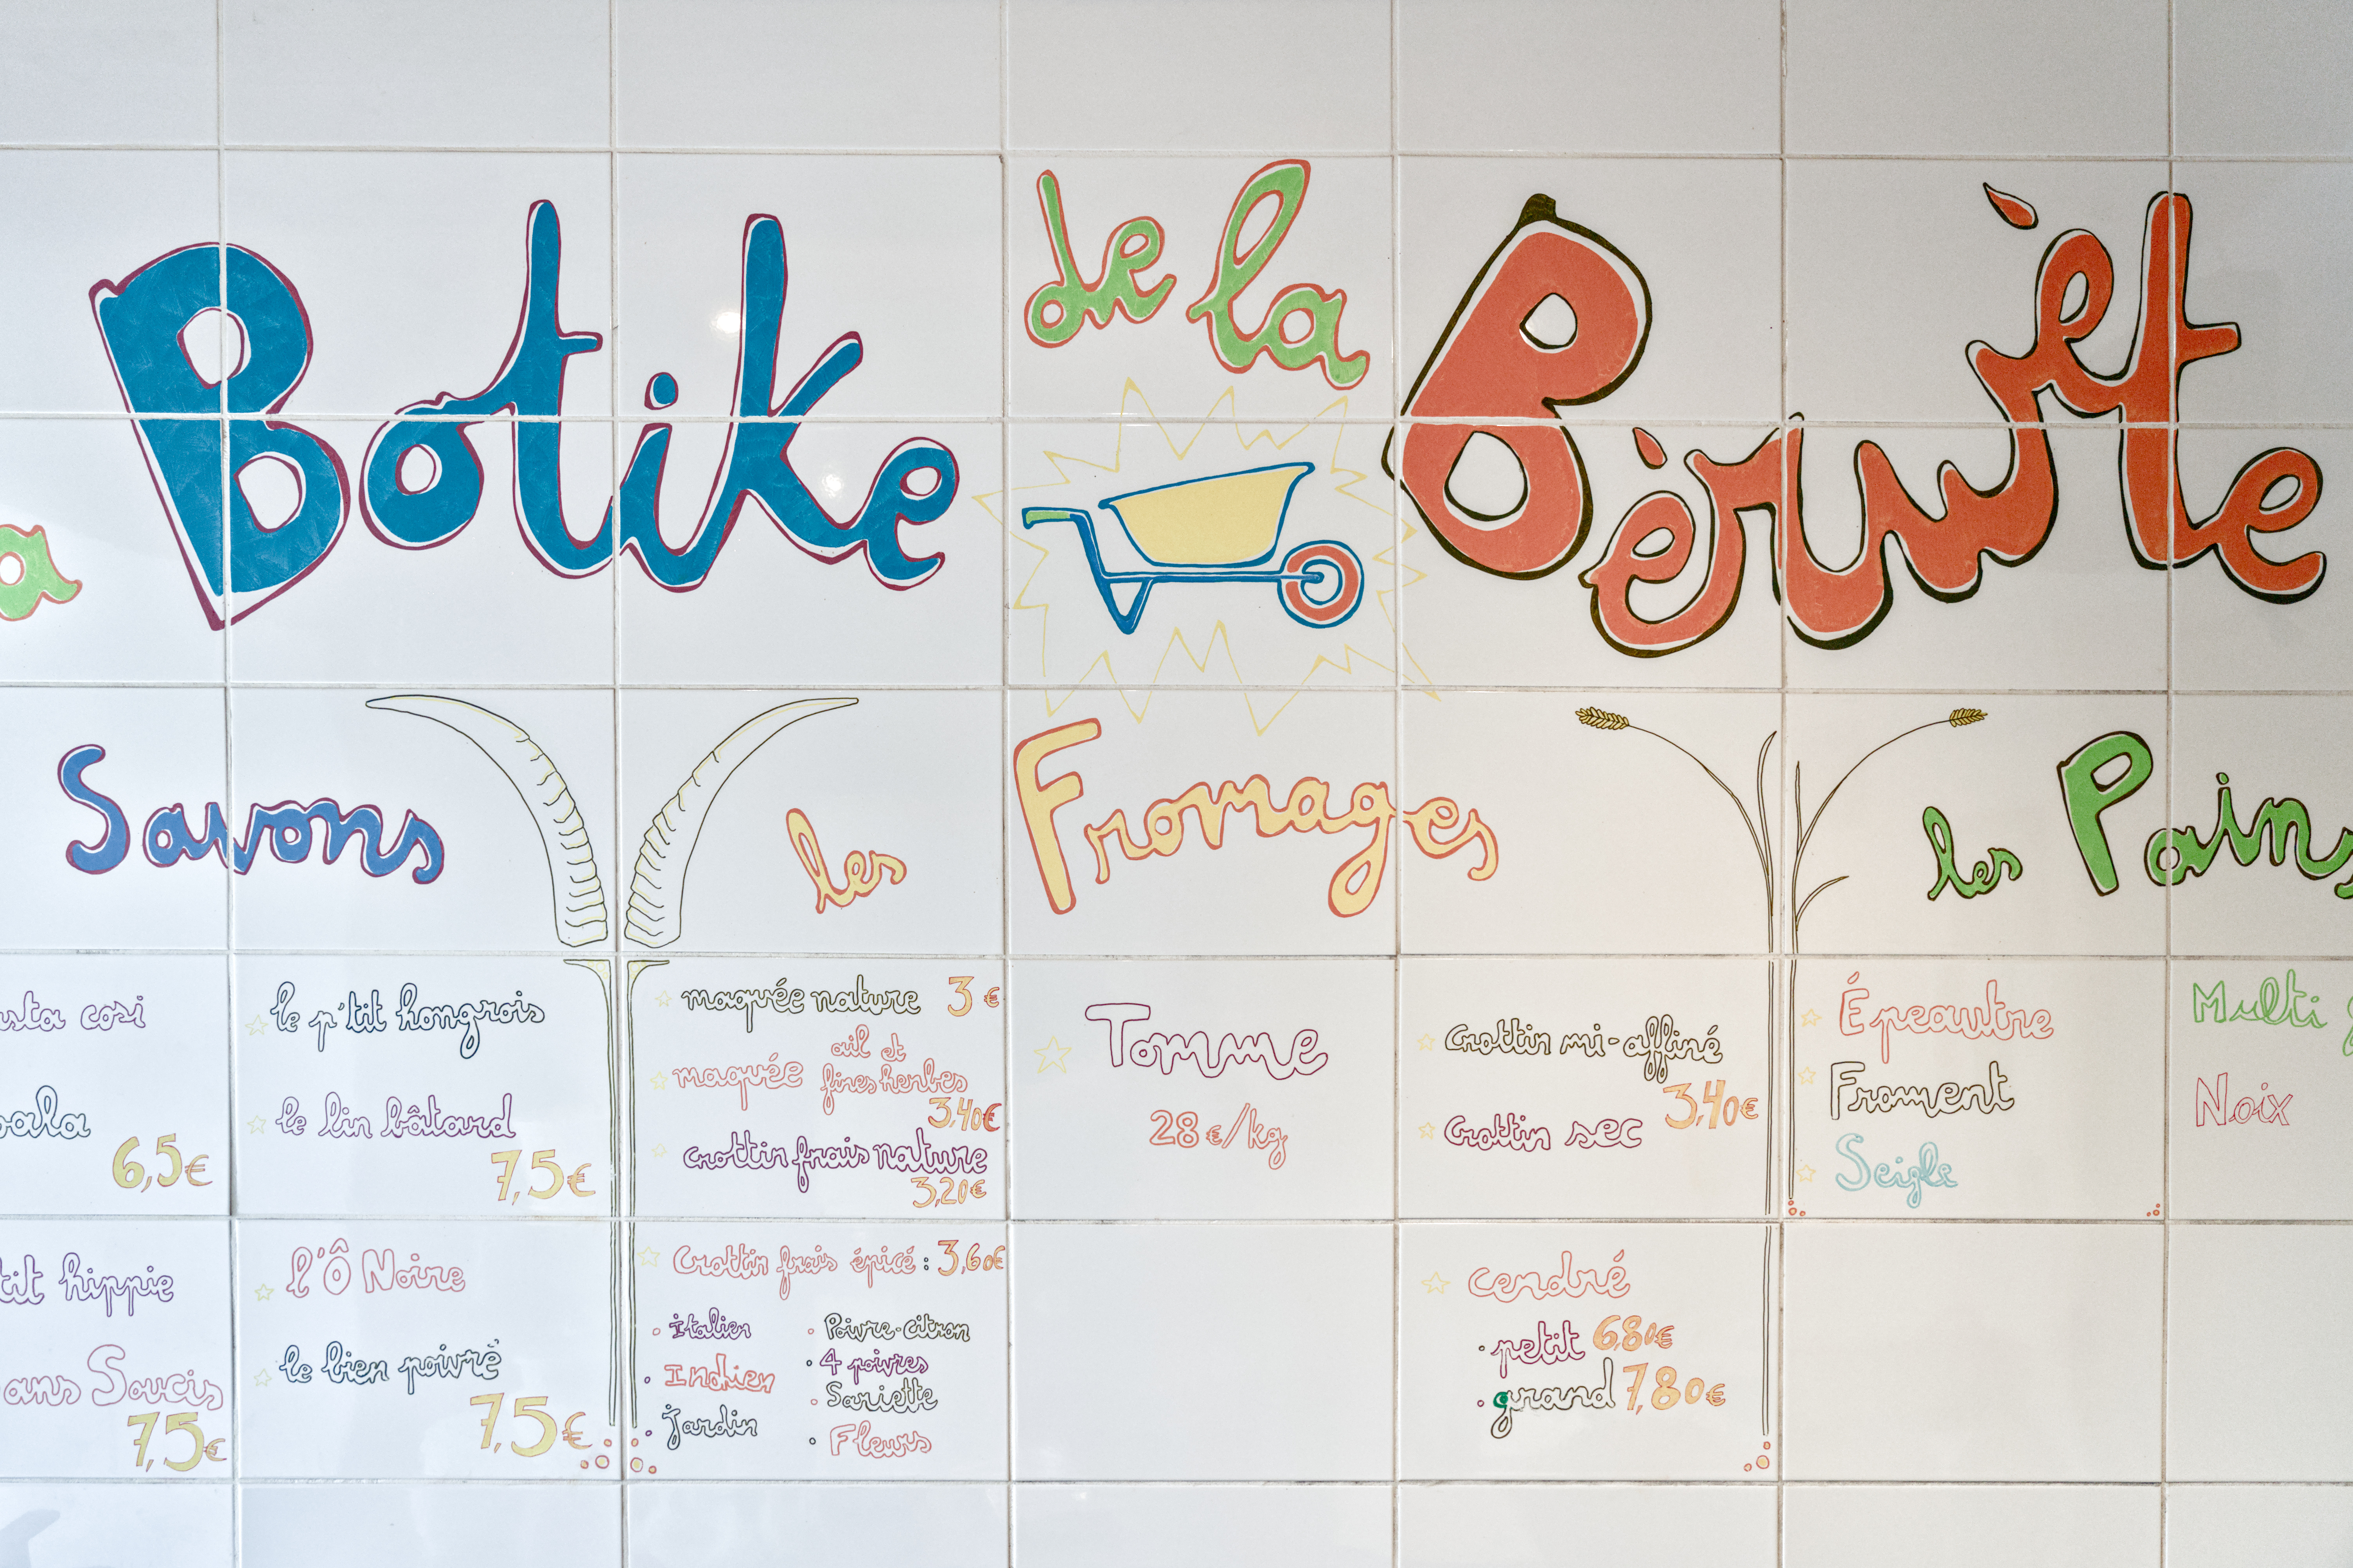 a Botike de la Bèrwète
Savons
les Fromages
les Pains
usta cosi
le p'tit hongrois
le lin bâtard
6,5€
7,5€
tit hippie
ans Soucis
7,5€
l'Ô Noire
le bien poivré
7,5€
maquée nature 3€
maquée ail et
fines herbes
3,40€
crottin frais nature
3,20€
Crottin frais épicé : 3,60€
· Italien
· Indien
· Jardin
· Poivre-citron
· 4 poivres
· Sariette
· Fleurs
Tomme
28€/kg
Crottin mi-affiné
Crottin sec
3,40€
cendré
· petit 6,80€
· grand 7,80€
Épeautre
Froment
Seigle
Multi
Noix